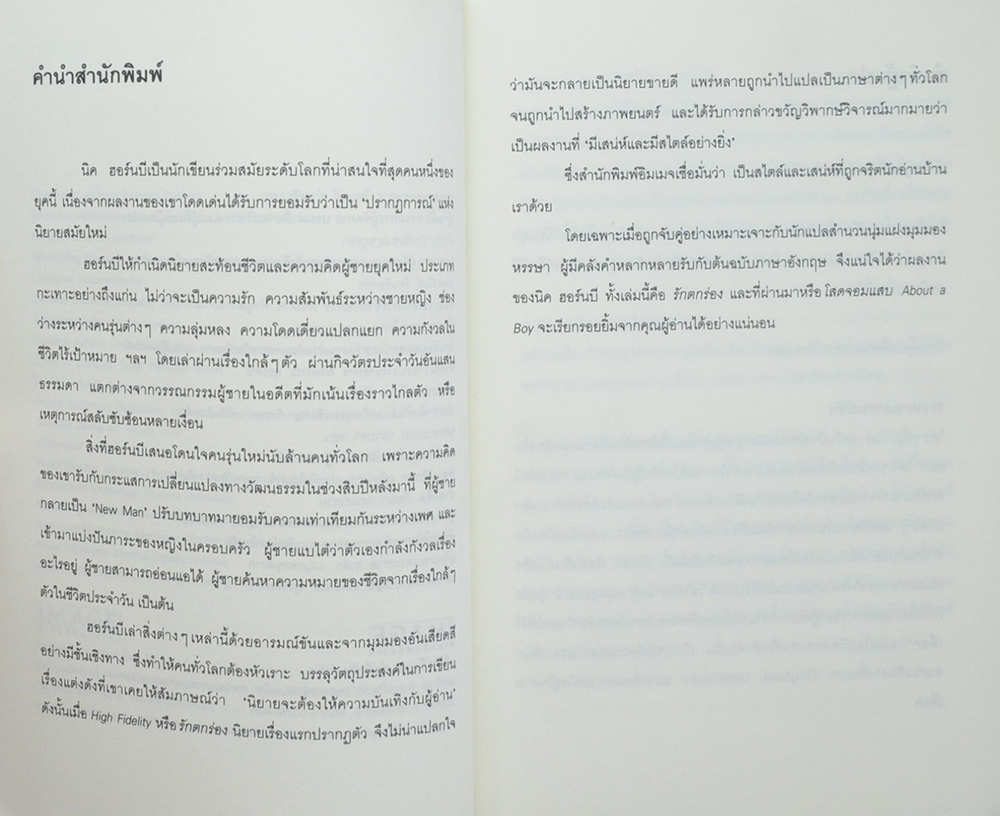 คำนำสำนักพิมพ์
นิค ฮอร์นบีเป็นนักเขียนร่วมสมัยระดับโลกที่น่าสนใจที่สุดคนหนึ่งของ
ยุคนี้ เนื่องจากผลงานของเขาโดดเด่นได้รับการยอมรับว่าเป็น ‘ปรากฏการณ์’ แห่ง
นิยายสมัยใหม่
ฮอร์นบีให้กำเนิดนิยายสะท้อนชีวิตและความคิดผู้ชายยุคใหม่ ประเภท
กะเทาะอย่างถึงแก่น ไม่ว่าจะเป็นความรัก ความสัมพันธ์ระหว่างชายหญิง ช่อง
ว่างระหว่างคนรุ่นต่างๆ ความลุ่มหลง ความโดดเดี่ยวแปลกแยก ความกังวลใน
ชีวิตไร้เป้าหมาย ฯลฯ โดยเล่าผ่านเรื่องใกล้ๆตัว ผ่านกิจวัตรประจำวันอันแสน
ธรรมดา แตกต่างจากวรรณกรรมผู้ชายในอดีตที่มักเน้นเรื่องราวไกลตัว หรือ
เหตุการณ์สลับซับซ้อนหลายเงื่อน
สิ่งที่ฮอร์นบีเสนอโดนใจคนรุ่นใหม่นับล้านคนทั่วโลก เพราะความคิด
ของเขารับกับกระแสการเปลี่ยนแปลงทางวัฒนธรรมในช่วงสิบปีหลังมานี้ ที่ผู้ชาย
กลายเป็น ‘New Man’ ปรับบทบาทมายอมรับความเท่าเทียมกันระหว่างเพศ และ
เข้ามาแบ่งปันภาระของหญิงในครอบครัว ผู้ชายแบไต๋ว่าตัวเองกำลังกังวลเรื่อง
อะไรอยู่ ผู้ชายสามารถอ่อนแอได้ ผู้ชายค้นหาความหมายของชีวิตจากเรื่องใกล้ๆ
ตัวในชีวิตประจำวัน เป็นต้น
ฮอร์นบีเล่าสิ่งต่างๆเหล่านี้ด้วยอารมณ์ขันและจากมุมมองอันเสียดสี
อย่างมีชั้นเชิงทาง ซึ่งทำให้คนทั่วโลกต้องหัวเราะ บรรลุวัตถุประสงค์ในการเขียน
เรื่องแต่งดังที่เขาเคยให้สัมภาษณ์ว่า ‘นิยายจะต้องให้ความบันเทิงกับผู้อ่าน’
ดังนั้นเมื่อ High Fidelity หรือรักตกร่อง นิยายเรื่องแรกปรากฏตัว จึงไม่น่าแปลกใจ
ว่ามันจะกลายเป็นนิยายขายดี แพร่หลายถูกนำไปแปลเป็นภาษาต่างๆทั่วโลก
จนถูกนำไปสร้างภาพยนตร์ และได้รับการกล่าวขวัญวิพากษ์วิจารณ์มากมายว่า
เป็นผลงานที่ ‘มีเสน่ห์และมีสไตล์อย่างยิ่ง’
ซึ่งสำนักพิมพ์อิมเมจเชื่อมั่นว่า เป็นสไตล์และเสน่ห์ที่ถูกจริตนักอ่านบ้าน
เราด้วย
โดยเฉพาะเมื่อถูกจับคู่อย่างเหมาะเจาะกับนักแปลสำนวนนุ่มแฝงมุมมอง
หรรษา ผู้มีคลังคำหลากหลายรับกับต้นฉบับภาษาอังกฤษ จึงแน่ใจได้ว่าผลงาน
ของนิค ฮอร์นบี ทั้งเล่มนี้คือ รักตกร่อง และที่ผ่านมาหรือโสดจอมแสบ About a
Boy จะเรียกรอยยิ้มจากคุณผู้อ่านได้อย่างแน่นอน